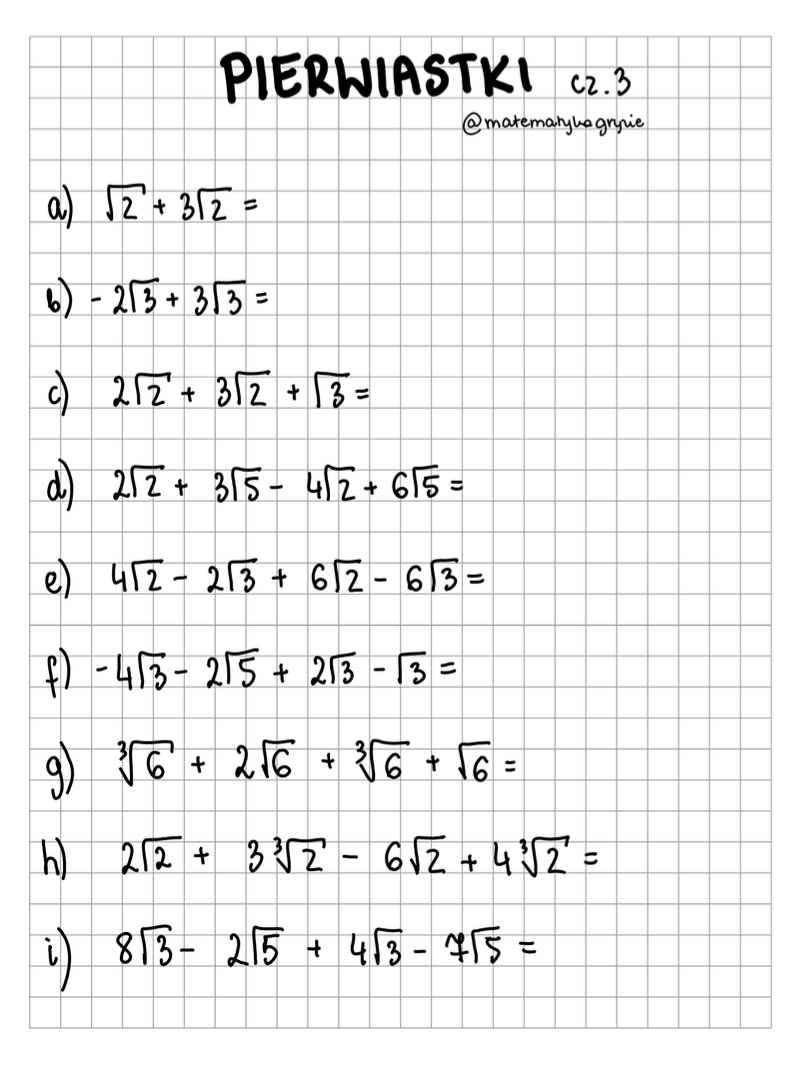 PIERWIASTKI cz.3
@matematykagryzie
a) √2 + 3√2 =
b) - 2√3 + 3√3 =
c) 2√2 + 3√2 + √3 =
d) 2√2 + 3√5 - 4√2 + 6√5 =
e) 4√2 - 2√3 + 6√2 - 6√3 =
f) -4√3 - 2√5 + 2√3 - √3 =
g) ∛6 + 2√6 + ∛6 + √6 =
h) 2√2 + 3∛2 - 6√2 + 4∛2 =
i) 8√3 - 2√5 + 4√3 - 7√5 =